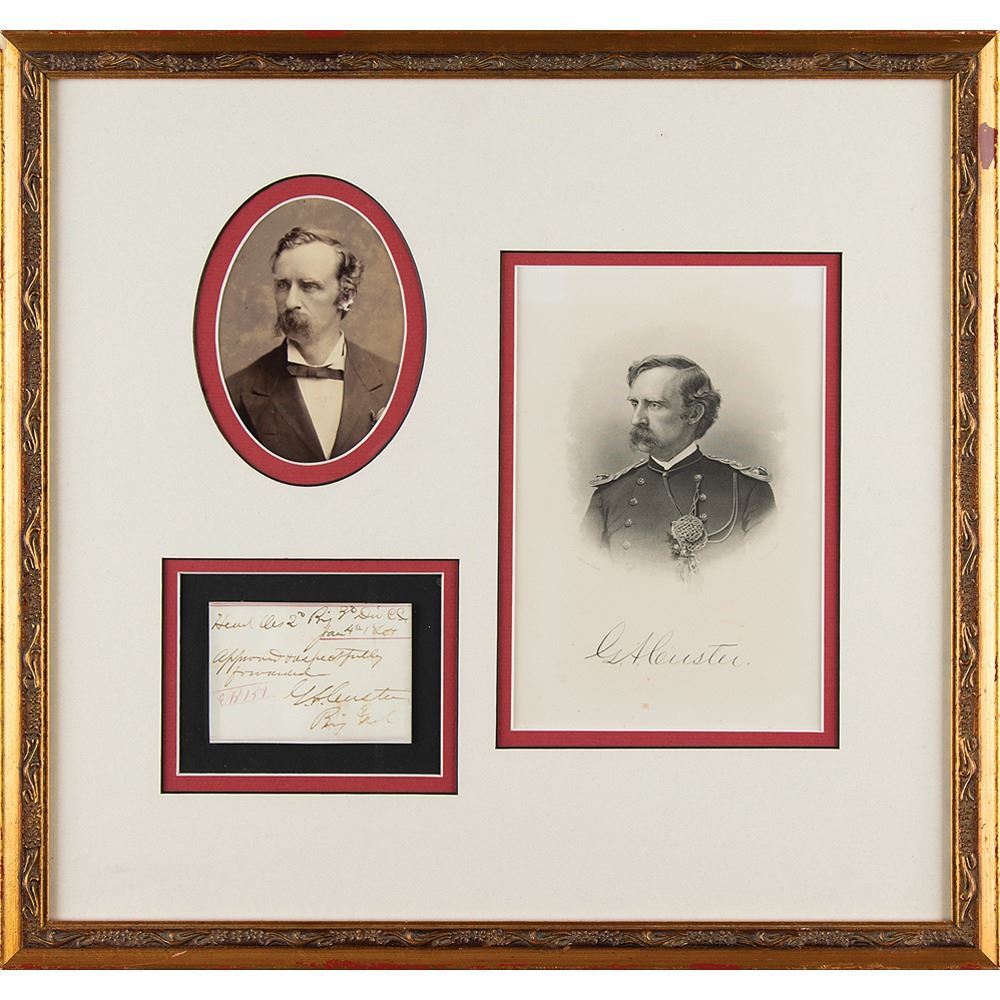 Head Qrs 2d Brig 3d Div C.C.
Jan 4th 1864
Approved & respectfully
forwarded
E.B 151 GACuster
Brig Genl
GACuster.